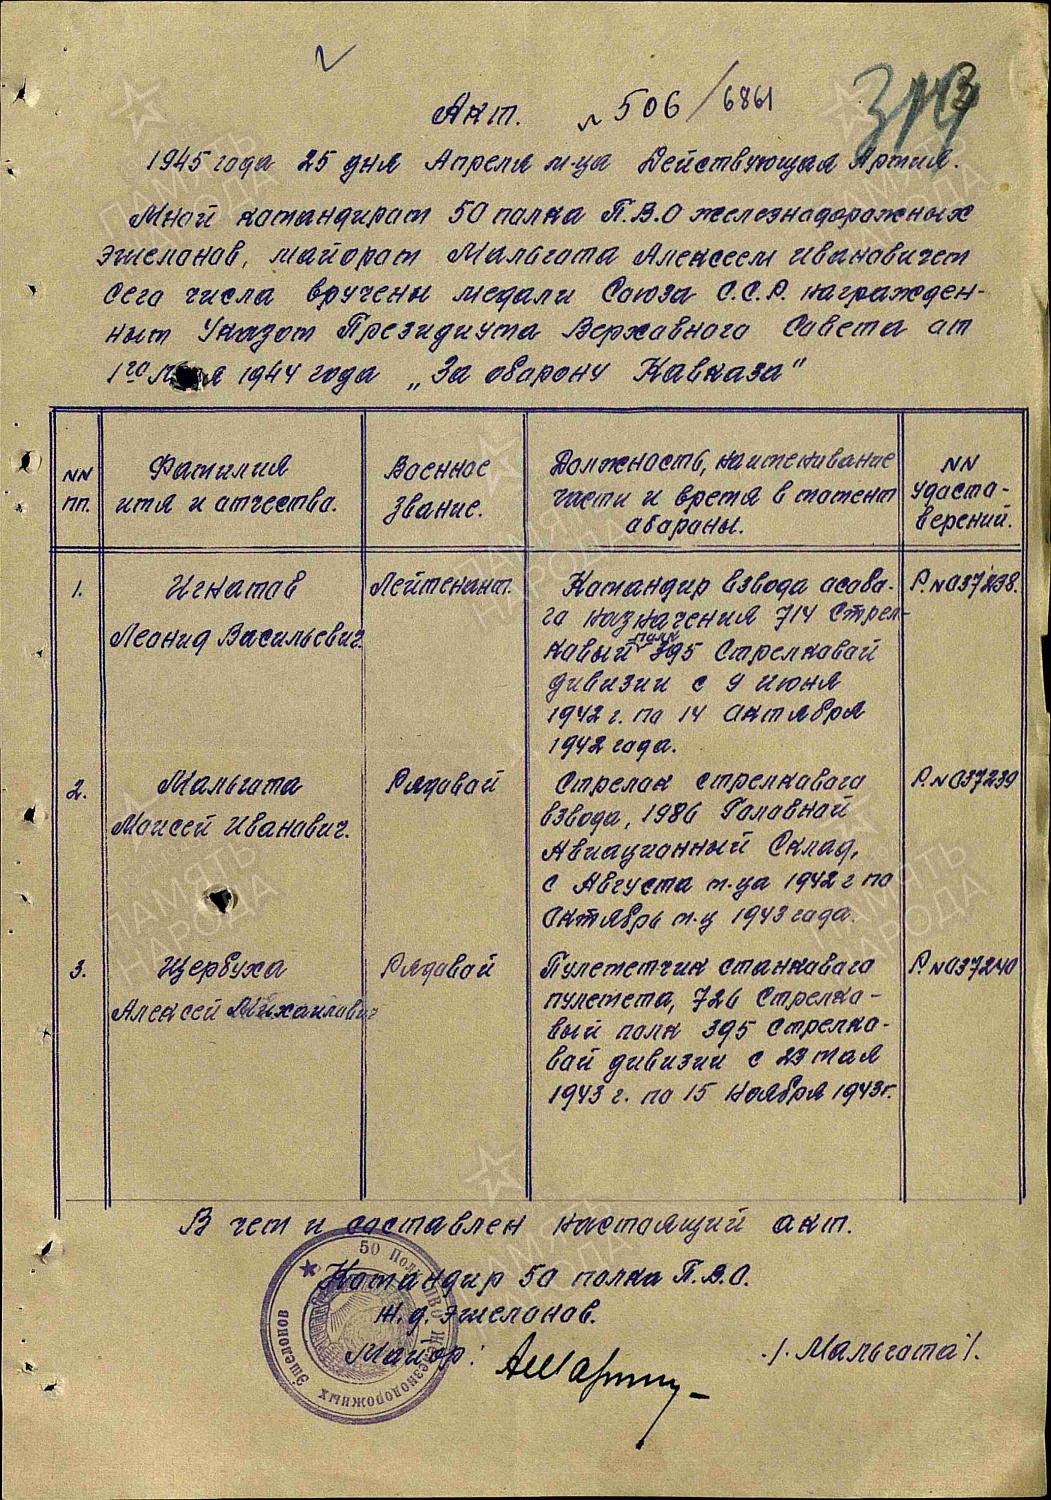 313
Акт. № 506/6861
1945 года 25 дня Апреля м-ца Действующая Армия.
Мной командиром 50 полка П.В.О железнодорожных
эшелонов, майором Мальгота Алексеем Ивановичем
сего числа вручены медали Союза С.С.Р. награжден-
ным Указом Президиума Верховного Совета от
1го мая 1944 года „За оборону Кавказа"
NN пп.
Фамилия имя и отчество.
Военное звание.
Должность, наименование части и время в момент обороны.
NN удосто-верений.
1.
Игнатов Леонид Васильевич.
Лейтенант.
Командир взвода особо-
го назначения 714 Стрел-
ковый полк 395 Стрелковой
дивизии с 9 июня
1942 г. по 14 октября
1942 года.
Р.№037238.
2.
Мальгота Моисей Иванович.
Рядовой
Стрелок стрелкового
взвода, 1986 Головной
Авиационный Склад,
с Августа м.ца 1942 г по
Октябрь м.ц 1943 года.
Р.№037239
3.
Щербуха Алексей Михайлович
Рядовой
Пулеметчик станкового
пулемета, 726 Стрелко-
вый полк 395 стрелко-
вой дивизии с 23 мая
1943 г. по 15 Ноября 1943г.
Р.№037240
В чем и составлен настоящий акт.
Командир 50 полка П.В.О.
ж.д. эшелонов.
Майор: /Мальгота/.
50 Полк ПВО Железнодорожных Эшелонов
ПАМЯТЬ НАРОДА